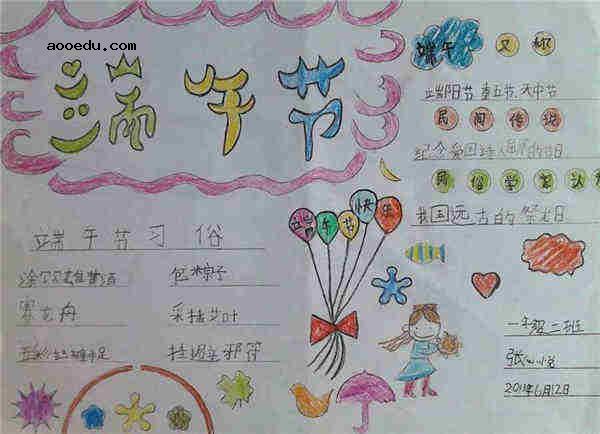 aooedu.com
端午节
端午 又称
端阳节、重五节、天中节
民间传说
纪念爱国诗人屈原的节日
民俗学家认为
我国远古的祭龙日
端午节快乐
端午节习俗
雄黄酒 包粽子
赛龙舟 采挂艾叶
五彩丝缠手足 挂避邪符
一年级二班
张
年6月12日